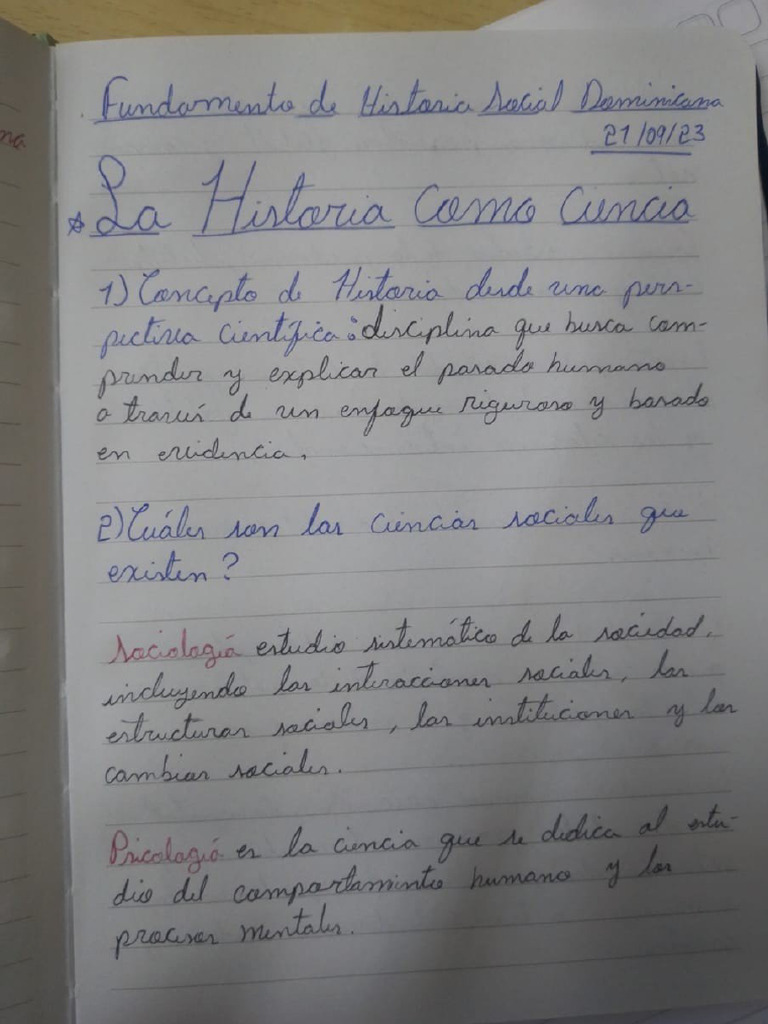 Fundamento de Historia Social Dominicana
21/09/23
La Historia como Ciencia
1) Concepto de Historia desde una pers-
pectiva científica: disciplina que busca com-
prender y explicar el pasado humano
a través de un enfoque riguroso y basado
en evidencia.
2) Cuáles son las ciencias sociales que
existen?
Sociología estudio sistemático de la sociedad,
incluyendo las interacciones sociales, las
estructuras sociales, las instituciones y los
cambios sociales.
Psicología es la ciencia que se dedica al estu-
dio del comportamiento humano y los
procesos mentales.